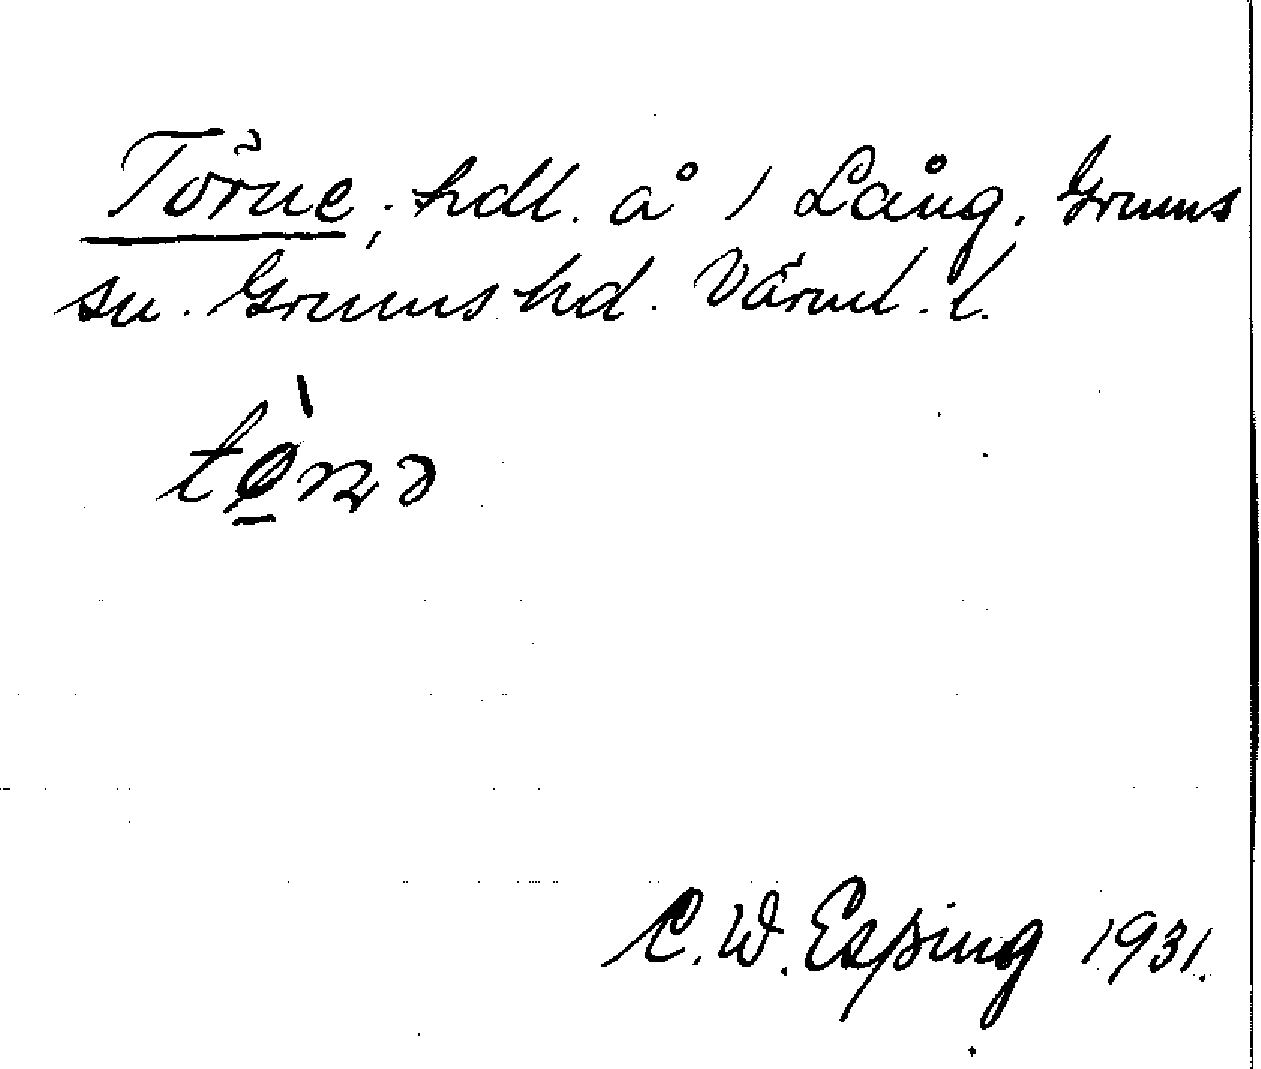 Törne, hdl. å 1 Lång, Grums
sn. Grums hd. Värml. l.
C. W. Esping 1931.